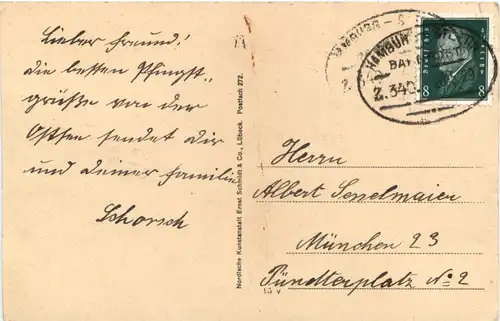 Lieber Freund!
die besten Pfingst-
grüße von der
Ostsee sendet Dir
und deiner Familie
Schorsch
Nordische Kunstanstalt Ernst Schmidt & Co., Lübeck. Postfach 272.
HAMBURG
Z. 340
8 8
Herrn
Albert Sesselmaier
München 23
Fündterplatz No 2